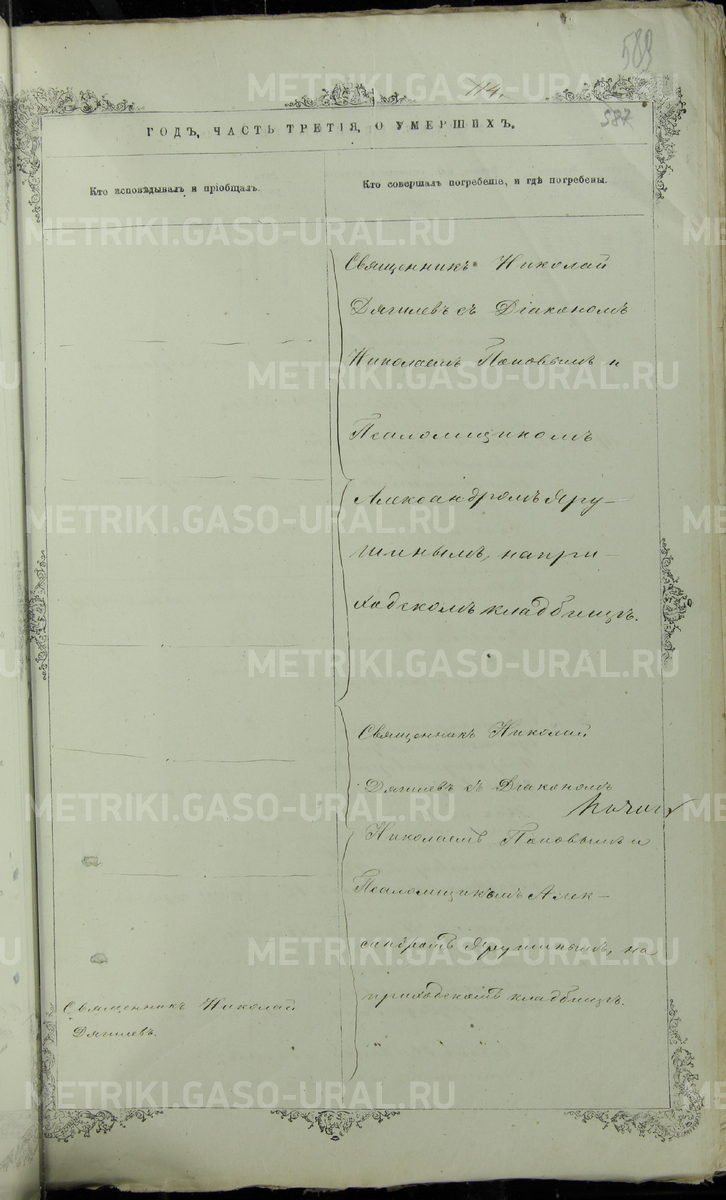 589
114.
587
ГОДЪ, ЧАСТЬ ТРЕТІЯ, О УМЕРШИХЪ.
Кто исповѣдывалъ и пріобщалъ.
Кто совершалъ погребеніе, и гдѣ погребены.
Священникъ Николай
Дягилевъ съ Діакономъ
Николаемъ Поповымъ и
Псаломщикомъ
Александромъ Яру-
шинымъ, на при-
ходскомъ кладбищѣ.
Священникъ Николай
Дягилевъ съ Діакономъ
Николаемъ Поповымъ и
Псаломщикомъ Алек-
сандромъ Ярушинымъ, на
приходскомъ кладбищѣ.
Священникъ Николай
Дягилевъ.
METRIKI.GASO-URAL.RU